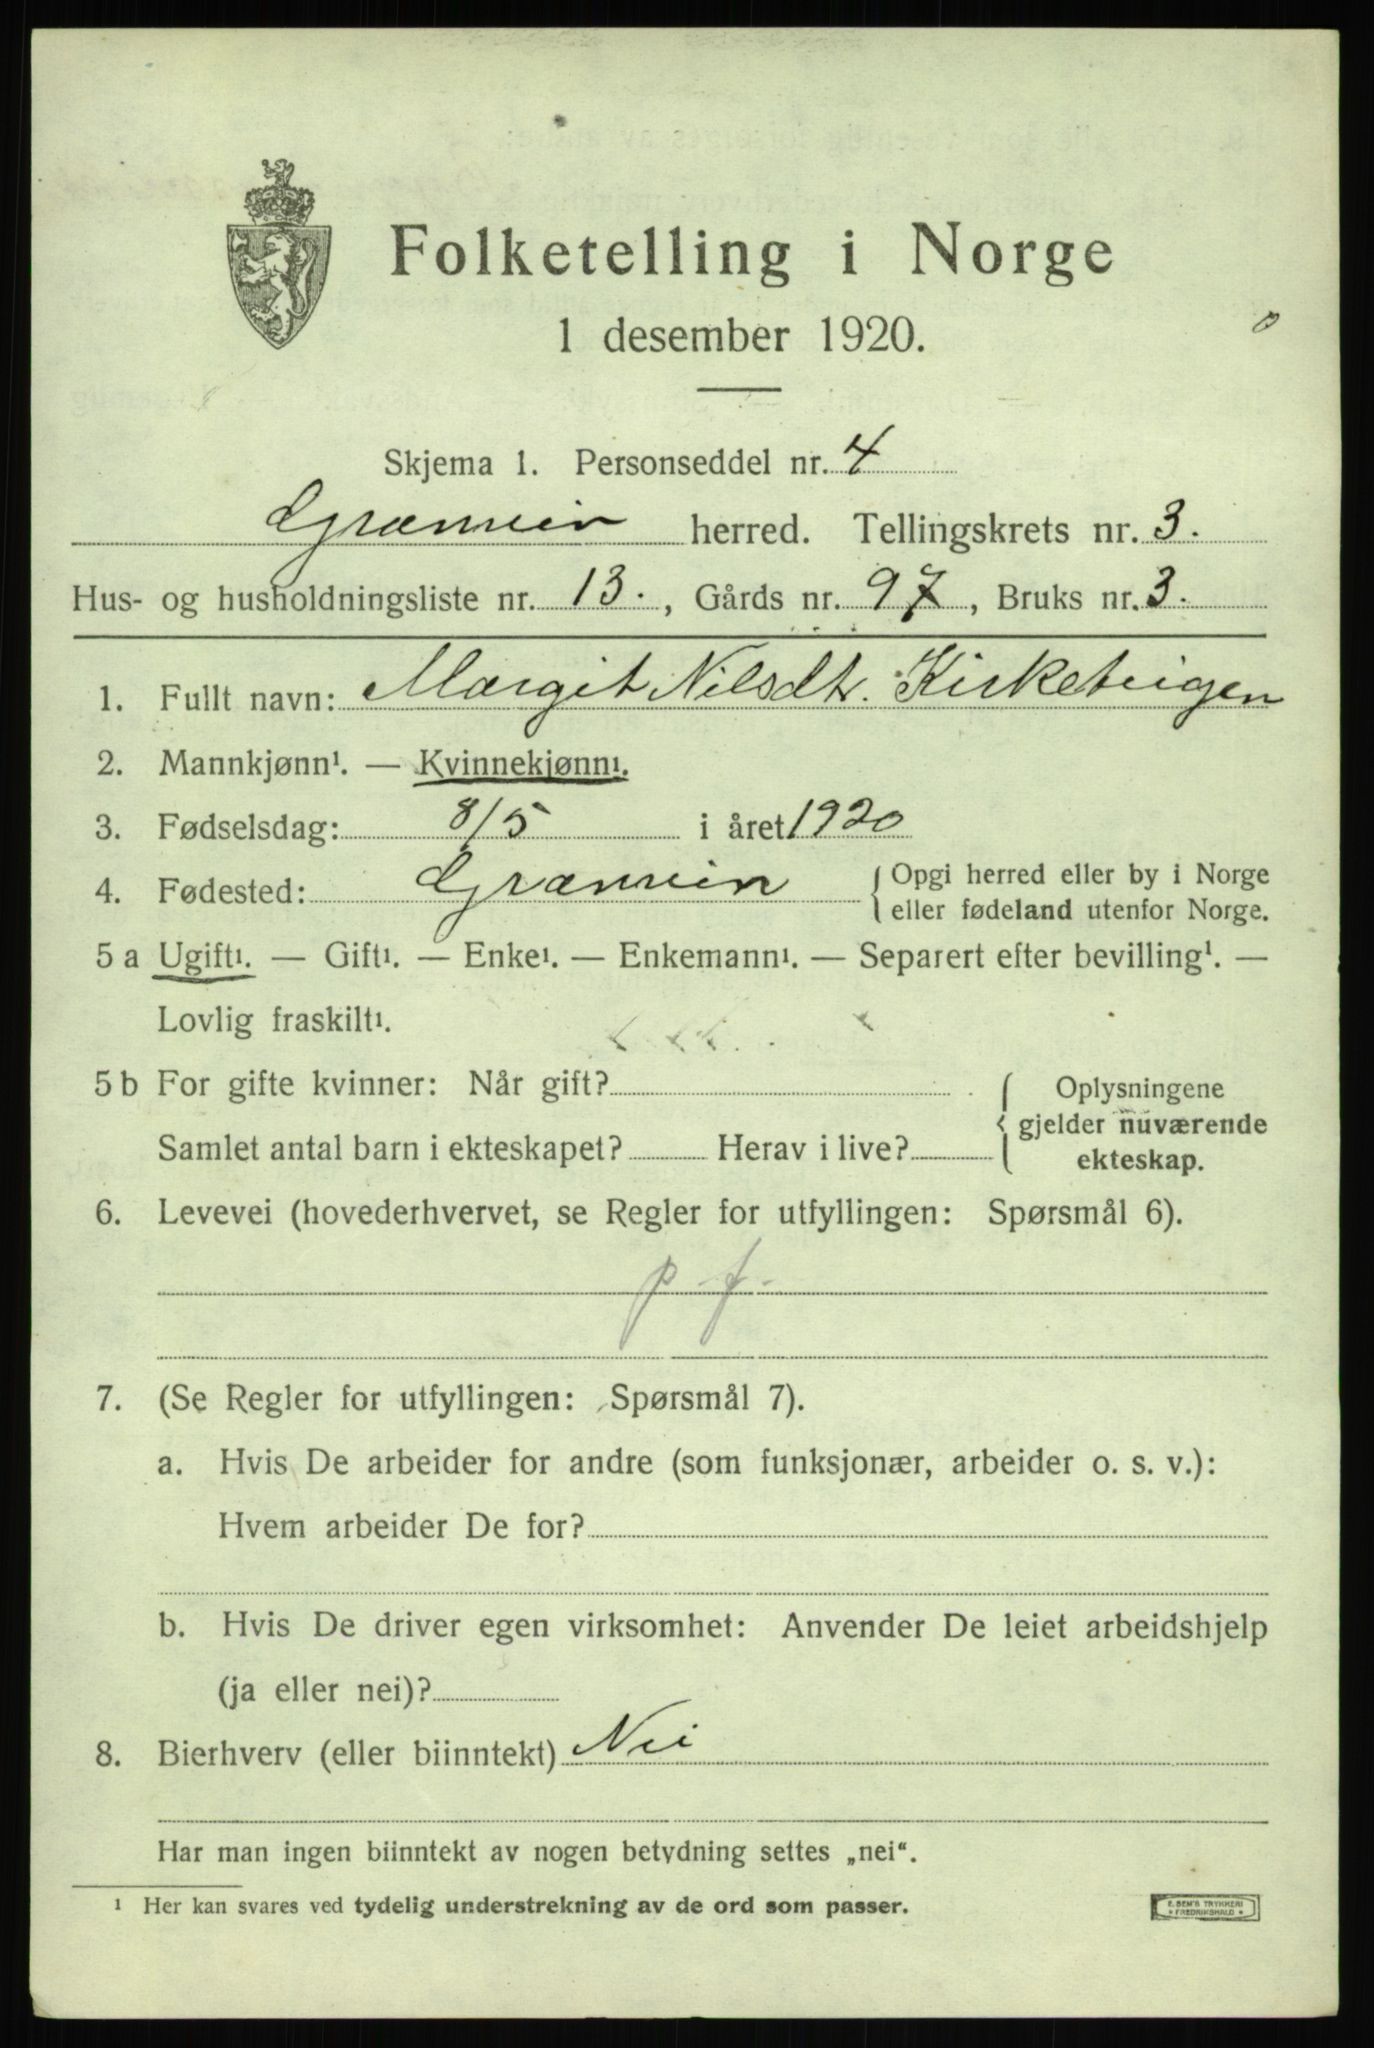 Folketelling i Norge
1 desember 1920.
Skjema 1. Personseddel nr. 4
Granvin herred. Tellingskrets nr. 3.
Hus- og husholdningsliste nr. 13., Gårds nr. 97, Bruks nr. 3.
1. Fullt navn: Margit Nilsdtr. Kirketeigen
2. Mannkjønn¹. — Kvinnekjønn¹.
3. Fødselsdag: 8/5 i året 1920
4. Fødested: Granvin {Opgi herred eller by i Norge
eller fødeland utenfor Norge.
5 a Ugift¹. — Gift¹. — Enke¹. — Enkemann¹. — Separert efter bevilling¹. —
Lovlig fraskilt¹.
5 b For gifte kvinner: Når gift? { Oplysningene
gjelder nuværende
Samlet antal barn i ekteskapet? Herav i live? ekteskap.
6. Levevei (hovederhvervet, se Regler for utfyllingen: Spørsmål 6).
p f.
7. (Se Regler for utfyllingen: Spørsmål 7).
a. Hvis De arbeider for andre (som funksjonær, arbeider o. s. v.):
Hvem arbeider De for?
b. Hvis De driver egen virksomhet: Anvender De leiet arbeidshjelp
(ja eller nei)?
8. Bierhverv (eller biinntekt) Nei
Har man ingen biinntekt av nogen betydning settes „nei“.
¹ Her kan svares ved tydelig understrekning av de ord som passer.
E. SEM'S TRYKKERI
FREDRIKSHALD